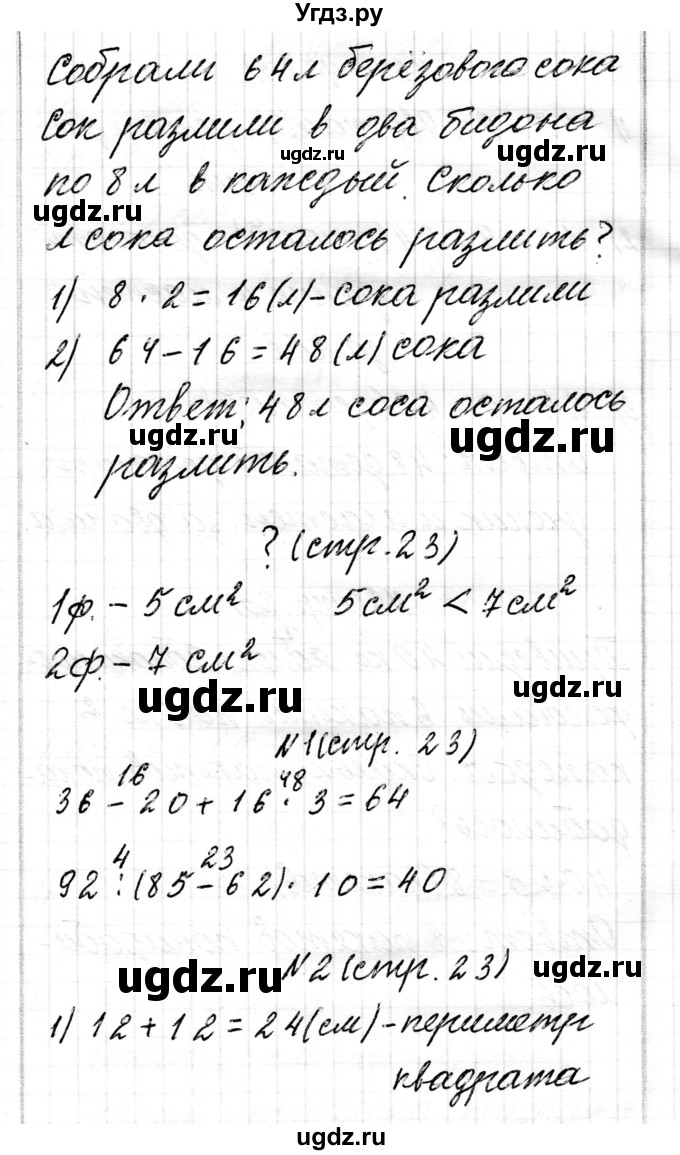 Угдз.ру
Собрали 64л берёзового сока
Сок разлили в два бидона
ugdz.ru ugdz.ru
по 8л в каждый. Сколько
ugdz.ru
л сока осталось разлить?
1) 8 · 2 = 16(л) - сока разлили
2) 64 - 16 = 48(л) сока
Ответ: 48л соса осталось
ugdz.ru ugdz.ru
разлить.
? (стр. 23)
1ф. - 5 см² 5см² < 7см²
2ф. - 7 см²
ugdz.ru ugdz.ru
N1(стр. 23)
16 48
36 - 20 + 16 · 3 = 64
4 23
92 : (85 - 62) · 10 = 40
N2(стр. 23)
ugdz.ru ugdz.ru
1) 12 + 12 = 24(см) - периметр
квадрата
ugdz.ru